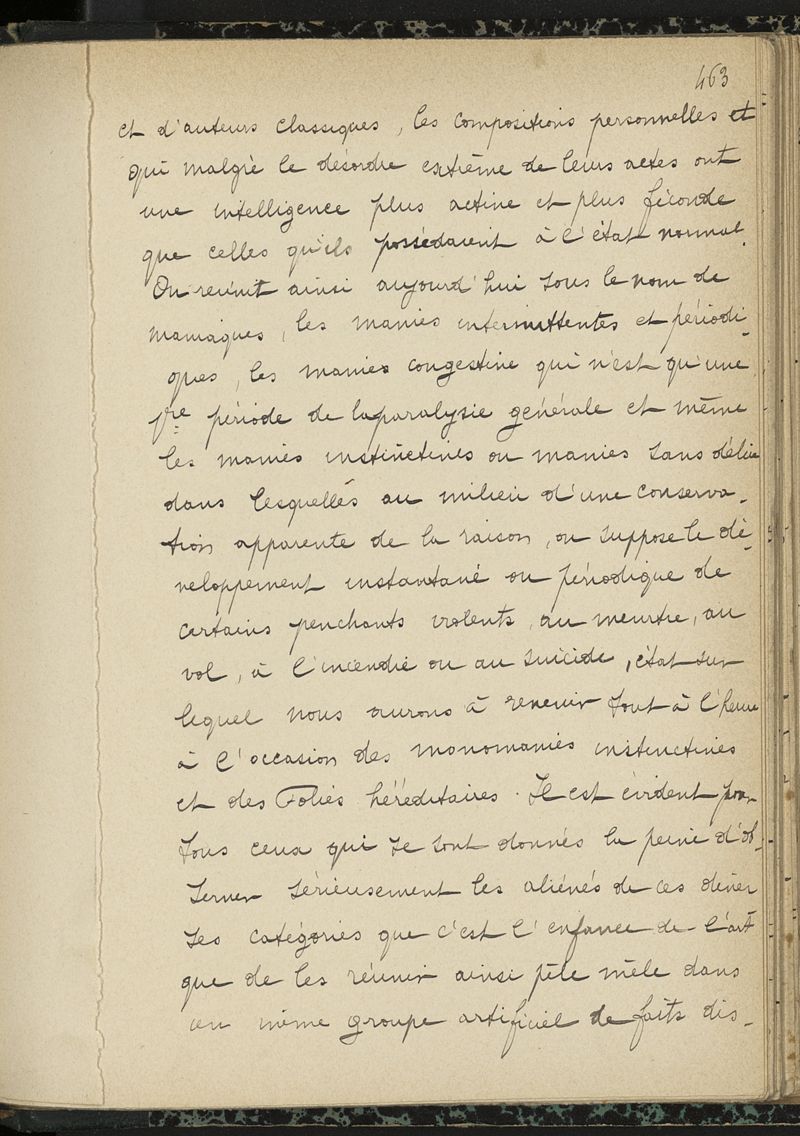 463
et d'auteurs classiques, les compositions personnelles et
qui malgré le désordre extrême de leurs actes ont
une intelligence plus active et plus féconde
que celles qu'ils possédaient à l'état normal.
On reunit ainsi aujourd'hui sous le nom de
maniaques, les manies intermittentes et périodi-
ques, les manies congestive qui n'est qu'une
1re période de la paralysie générale et même
les manies instinctives ou manies sans délire
dans lesquelles au milieu d'une conserva-
tion apparente de la raison, on suppose le dé-
veloppement instantané ou périodique de
certains penchants violents, au meurtre, au
vol, à l'incendie ou au suicide, état sur
lequel nous aurons à revenir tout à l'heure
à l'occasion des monomanies instinctives
et des Folies héréditaires. Il est évident pour
tous ceux qui se sont donnés la peine d'ob-
server sérieusement les aliénés de ces diver
ses catégories que c'est l'enfance de l'art
que de les réunir ainsi pêle mêle dans
un même groupe artificiel de faits dis-